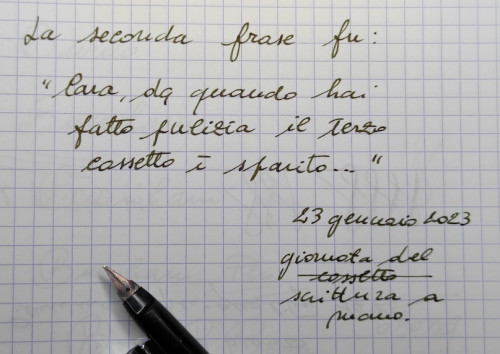 La seconda frase fu:
"Cara, da quando hai
fatto pulizia il terzo
cassetto è sparito..."
23 gennaio 2023
giornata del
cassetto
scrittura a
mano.